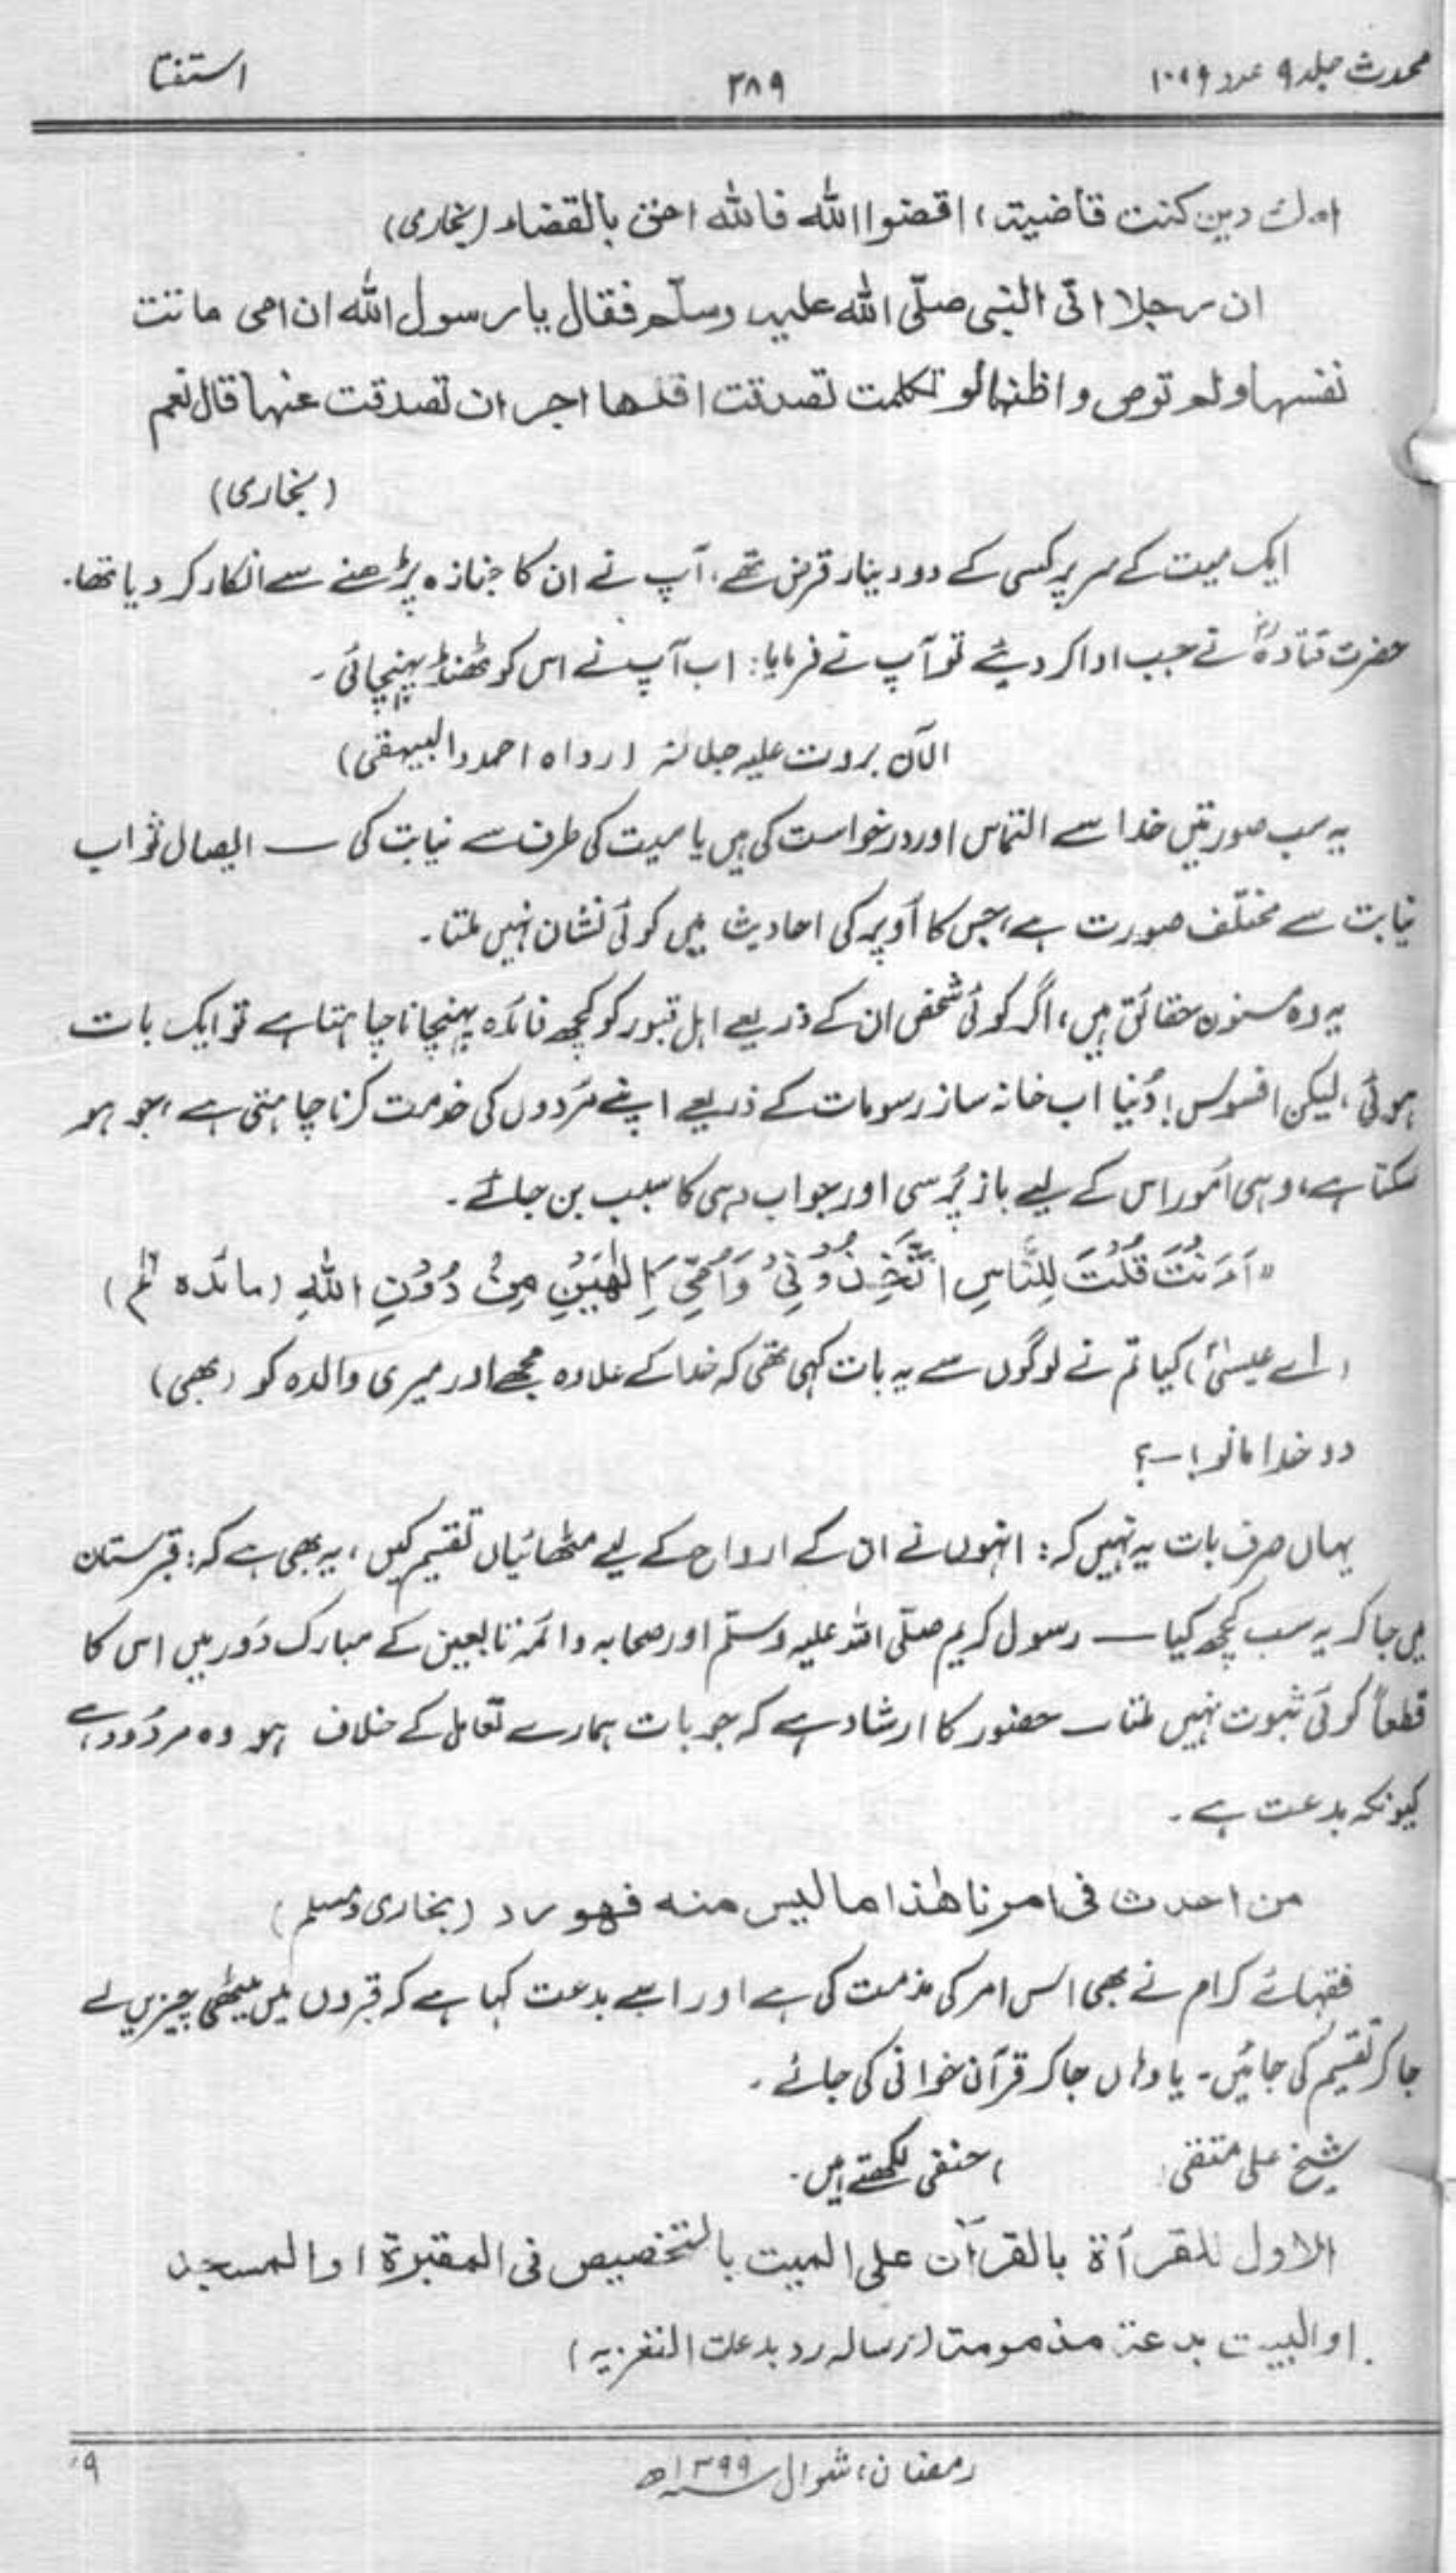 محدث جلد ۹ عدد ۹، ۱۰
۳۸۹
استفتا
امك دين كنت قاضيته، اقضوا الله فالله احق بالقضاء (بخاری)
ان رجلا اتى النبي صلّى الله عليه وسلّم فقال يا رسول الله ان امى ماتت
نفسها ولم توص واظنها لو تكلمت تصدقت افلها اجر ان تصدقت عنها قال نعم
(بخاری)
ایک میت کے سر پر کسی کے دو دینار قرض تھے، آپ نے ان کا جنازہ پڑھنے سے انکار کر دیا تھا۔
حضرت قتادہؓ نے جب ادا کر دیئے تو آپ نے فرمایا: اب آپ نے اس کو ٹھنڈ پہنچائی۔
الآن بردت عليه جلدته (رواہ احمد والبیہقی)
یہ سب صورتیں خدا سے التماس اور درخواست کی ہیں یا میت کی طرف سے نیابت کی ـــ ایصال ثواب
نیابت سے مختلف صورت ہے، جس کا اُوپر کی احادیث میں کوئی نشان نہیں ملتا۔
یہ وہ مسنون حقائق ہیں، اگر کوئی شخص ان کے ذریعے اہل قبور کو کچھ فائدہ پہنچانا چاہتا ہے تو ایک بات
ہوئی، لیکن افسوس! دُنیا اب خانہ ساز رسومات کے ذریعے اپنے مُردوں کی خدمت کرنا چاہتی ہے، جو ہو
سکتا ہے، وہی اُمور اس کے لیے باز پُرسی اور جواب دہی کا سبب بن جائے۔
"أَأَنْتَ قُلْتَ لِلنَّاسِ اتَّخِذُوْنِيْ وَأُمِّيَ إِلٰهَيْنِ مِنْ دُوْنِ اللهِ (مائدہ ع)
(اے عیسیٰؑ) کیا تم نے لوگوں سے یہ بات کہی تھی کہ خدا کے علاوہ مجھے اور میری والدہ کو (بھی)
دو خدا مانو! ـ؟
یہاں صرف بات یہ نہیں کہ: انہوں نے ان کے ارواح کے لیے مٹھائیاں تقسیم کیں، یہ بھی ہے کہ: قبرستان
میں جا کر یہ سب کچھ کیا ـــ رسول کریم صلّی اللہ علیہ وسلّم اور صحابہ و ائمہ تابعین کے مبارک دَور میں اس کا
قطعاً کوئی ثبوت نہیں ملتا ـ حضور کا ارشاد ہے کہ جو بات ہمارے تعامل کے خلاف ہو وہ مردُود ہے
کیونکہ بدعت ہے۔
من احدث فى امرنا هٰذا ما ليس منه فهو رد (بخاری ومسلم)
فقہائے کرام نے بھی اس امر کی مذمت کی ہے اور اسے بدعت کہا ہے کہ قبروں میں میٹھی چیزیں لے
جا کر تقسیم کی جائیں۔ یا وہاں جا کر قرآن خوانی کی جائے۔
شیخ علی متقی، حنفی لکھتے ہیں۔
الاول للقرآة بالقرآن على الميت بالتخصيص فى المقبرة او المسجد
او البيت بدعة مذمومة (رسالہ رد بدعات التعزیہ)
رمضان، شوال ۱۳۹۹ھ
۹